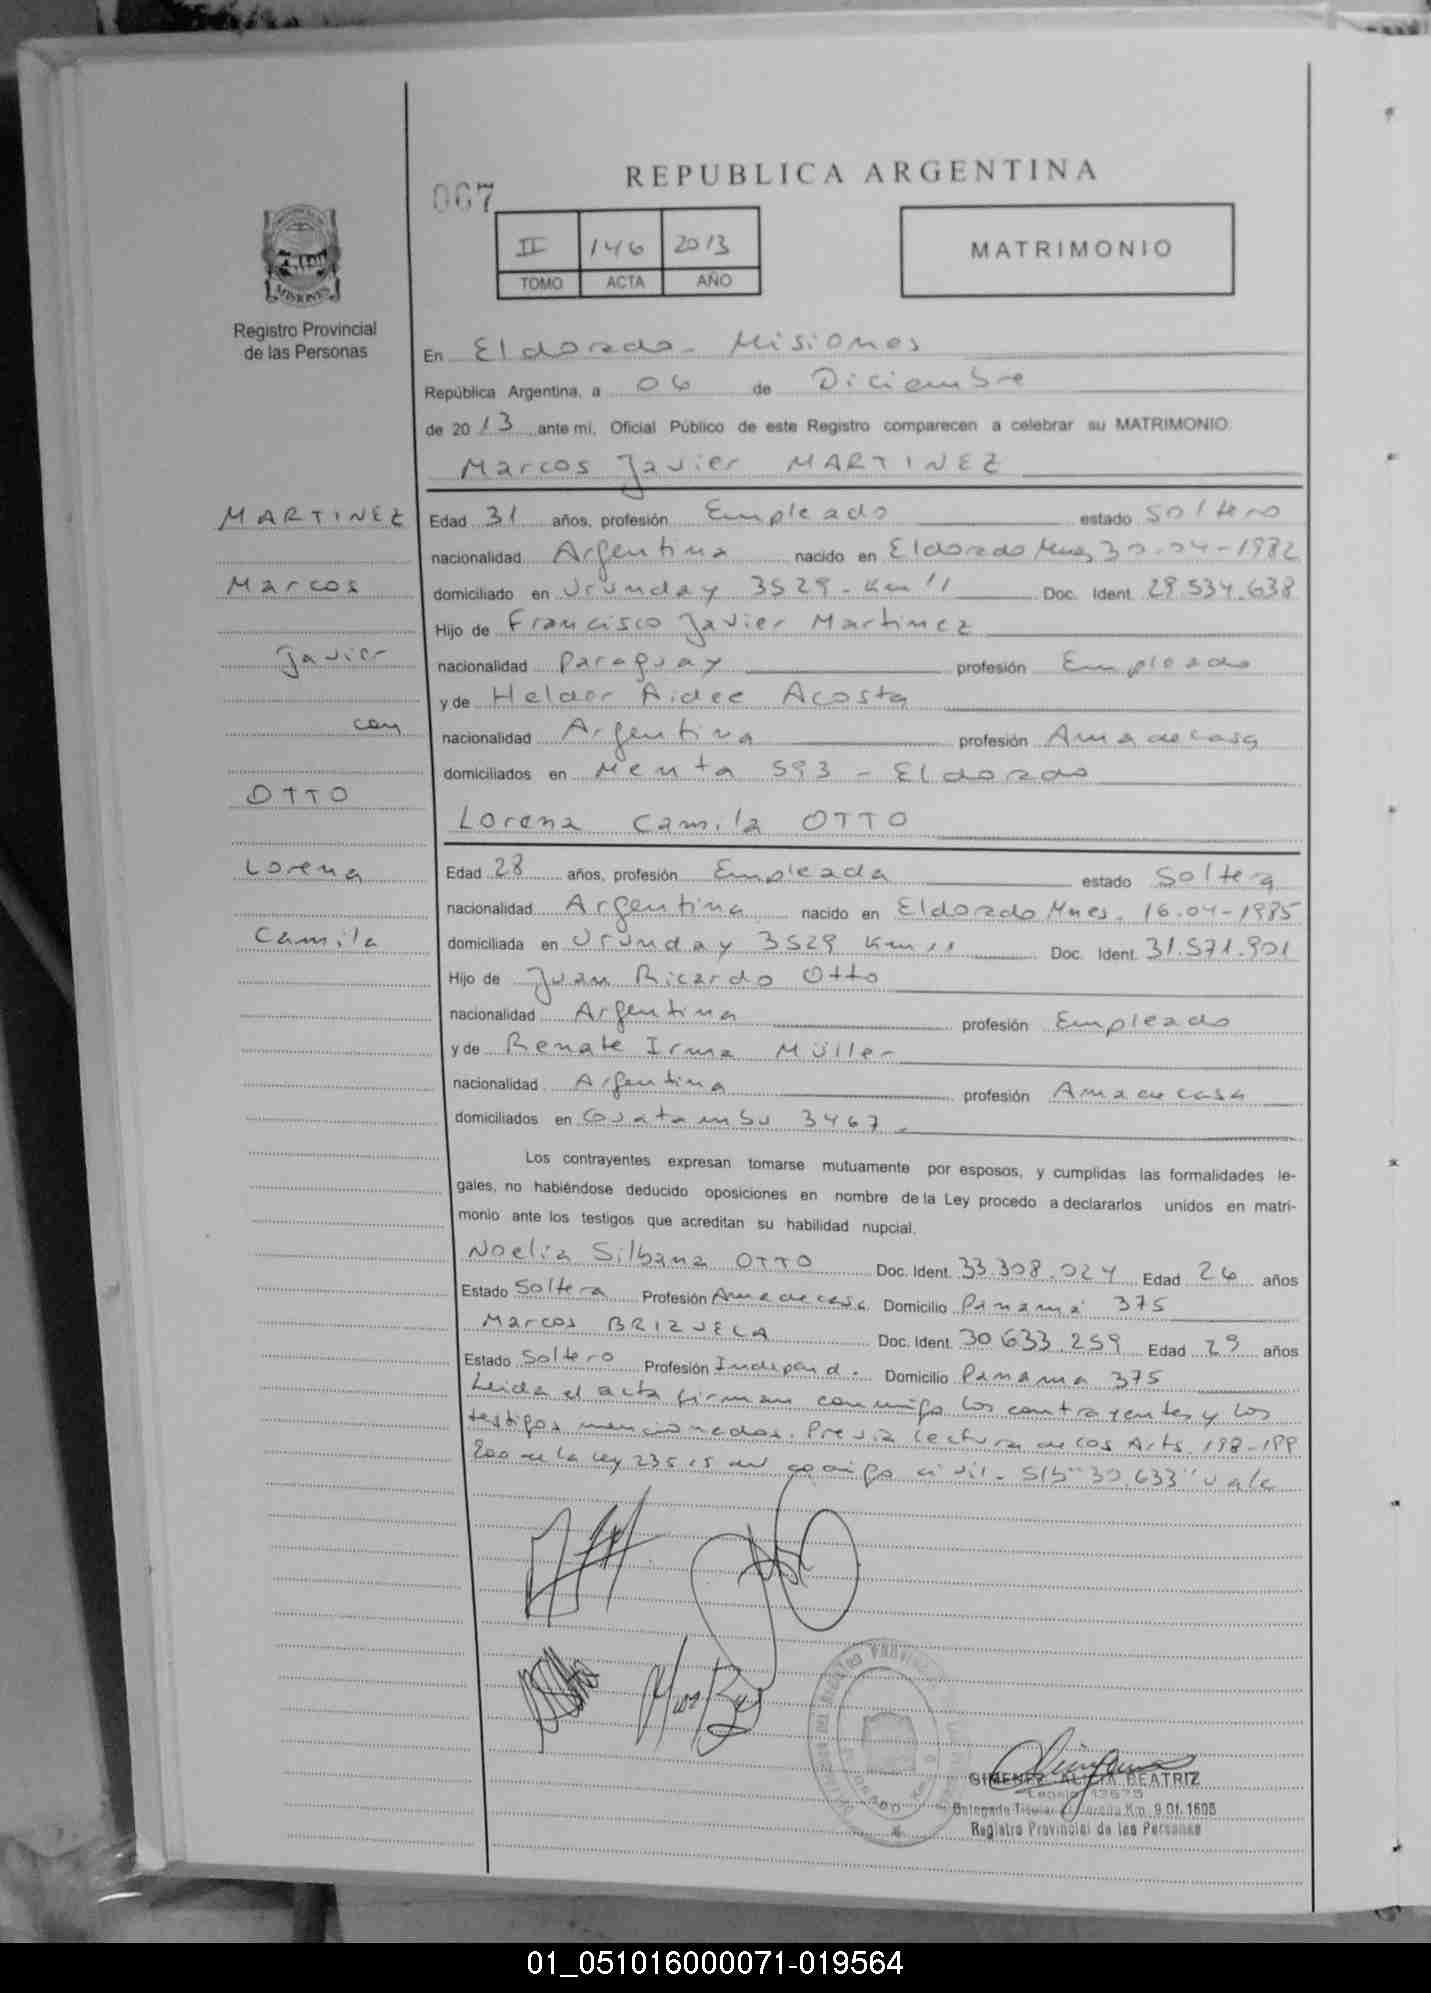 REPUBLICA ARGENTINA
067
II 146 2013
TOMO ACTA AÑO
MATRIMONIO
MISIONES
Registro Provincial
de las Personas
En Eldorado - Misiones
República Argentina, a 06 de Diciembre
de 2013 ante mí, Oficial Público de este Registro comparecen a celebrar su MATRIMONIO
Marcos Javier MARTINEZ
MARTINEZ
Marcos
Javier
con
OTTO
Lorena
Camila
Edad 31 años, profesión Empleado estado Soltero
nacionalidad Argentina nacido en Eldorado Mnes 30.04-1982
domiciliado en Urunday 3529 - Km 11 Doc. Ident. 29.534.638
Hijo de Francisco Javier Martinez
nacionalidad Paraguay profesión Empleado
y de Helder Aidee Acosta
nacionalidad Argentina profesión Ama de casa
domiciliados en Menta 593 - Eldorado
Lorena Camila OTTO
Edad 28 años, profesión Empleada estado Soltera
nacionalidad Argentina nacido en Eldorado Mnes. 16.04-1985
domiciliada en Urunday 3529 Km 11 Doc. Ident. 31.571.901
Hijo de Juan Ricardo Otto
nacionalidad Argentina profesión Empleado
y de Renate Irma Müller
nacionalidad Argentina profesión Ama de casa
domiciliados en Guatambu 3467.
Los contrayentes expresan tomarse mutuamente por esposos, y cumplidas las formalidades le-
gales, no habiéndose deducido oposiciones en nombre de la Ley procedo a declararlos unidos en matri-
monio ante los testigos que acreditan su habilidad nupcial.
Noelia Silbana OTTO Doc. Ident. 33.308.024 Edad 26 años
Estado Soltera Profesión Ama de casa Domicilio Panamá 375
Marcos BRIZUELA Doc. Ident. 30.633.259 Edad 29 años
Estado Soltero Profesión Independ. Domicilio Panama 375
Leida el acta firman conmigo los contrayentes y los
testigos mencionados. Previa lectura de los Arts. 198-199
200 de la Ley 23515 del codigo civil - S/b "30.633" vale
GIMENEZ ALICIA BEATRIZ
Delegada Titular Eldorado Km. 9 Of. 1605
Registro Provincial de las Personas
01_051016000071-019564